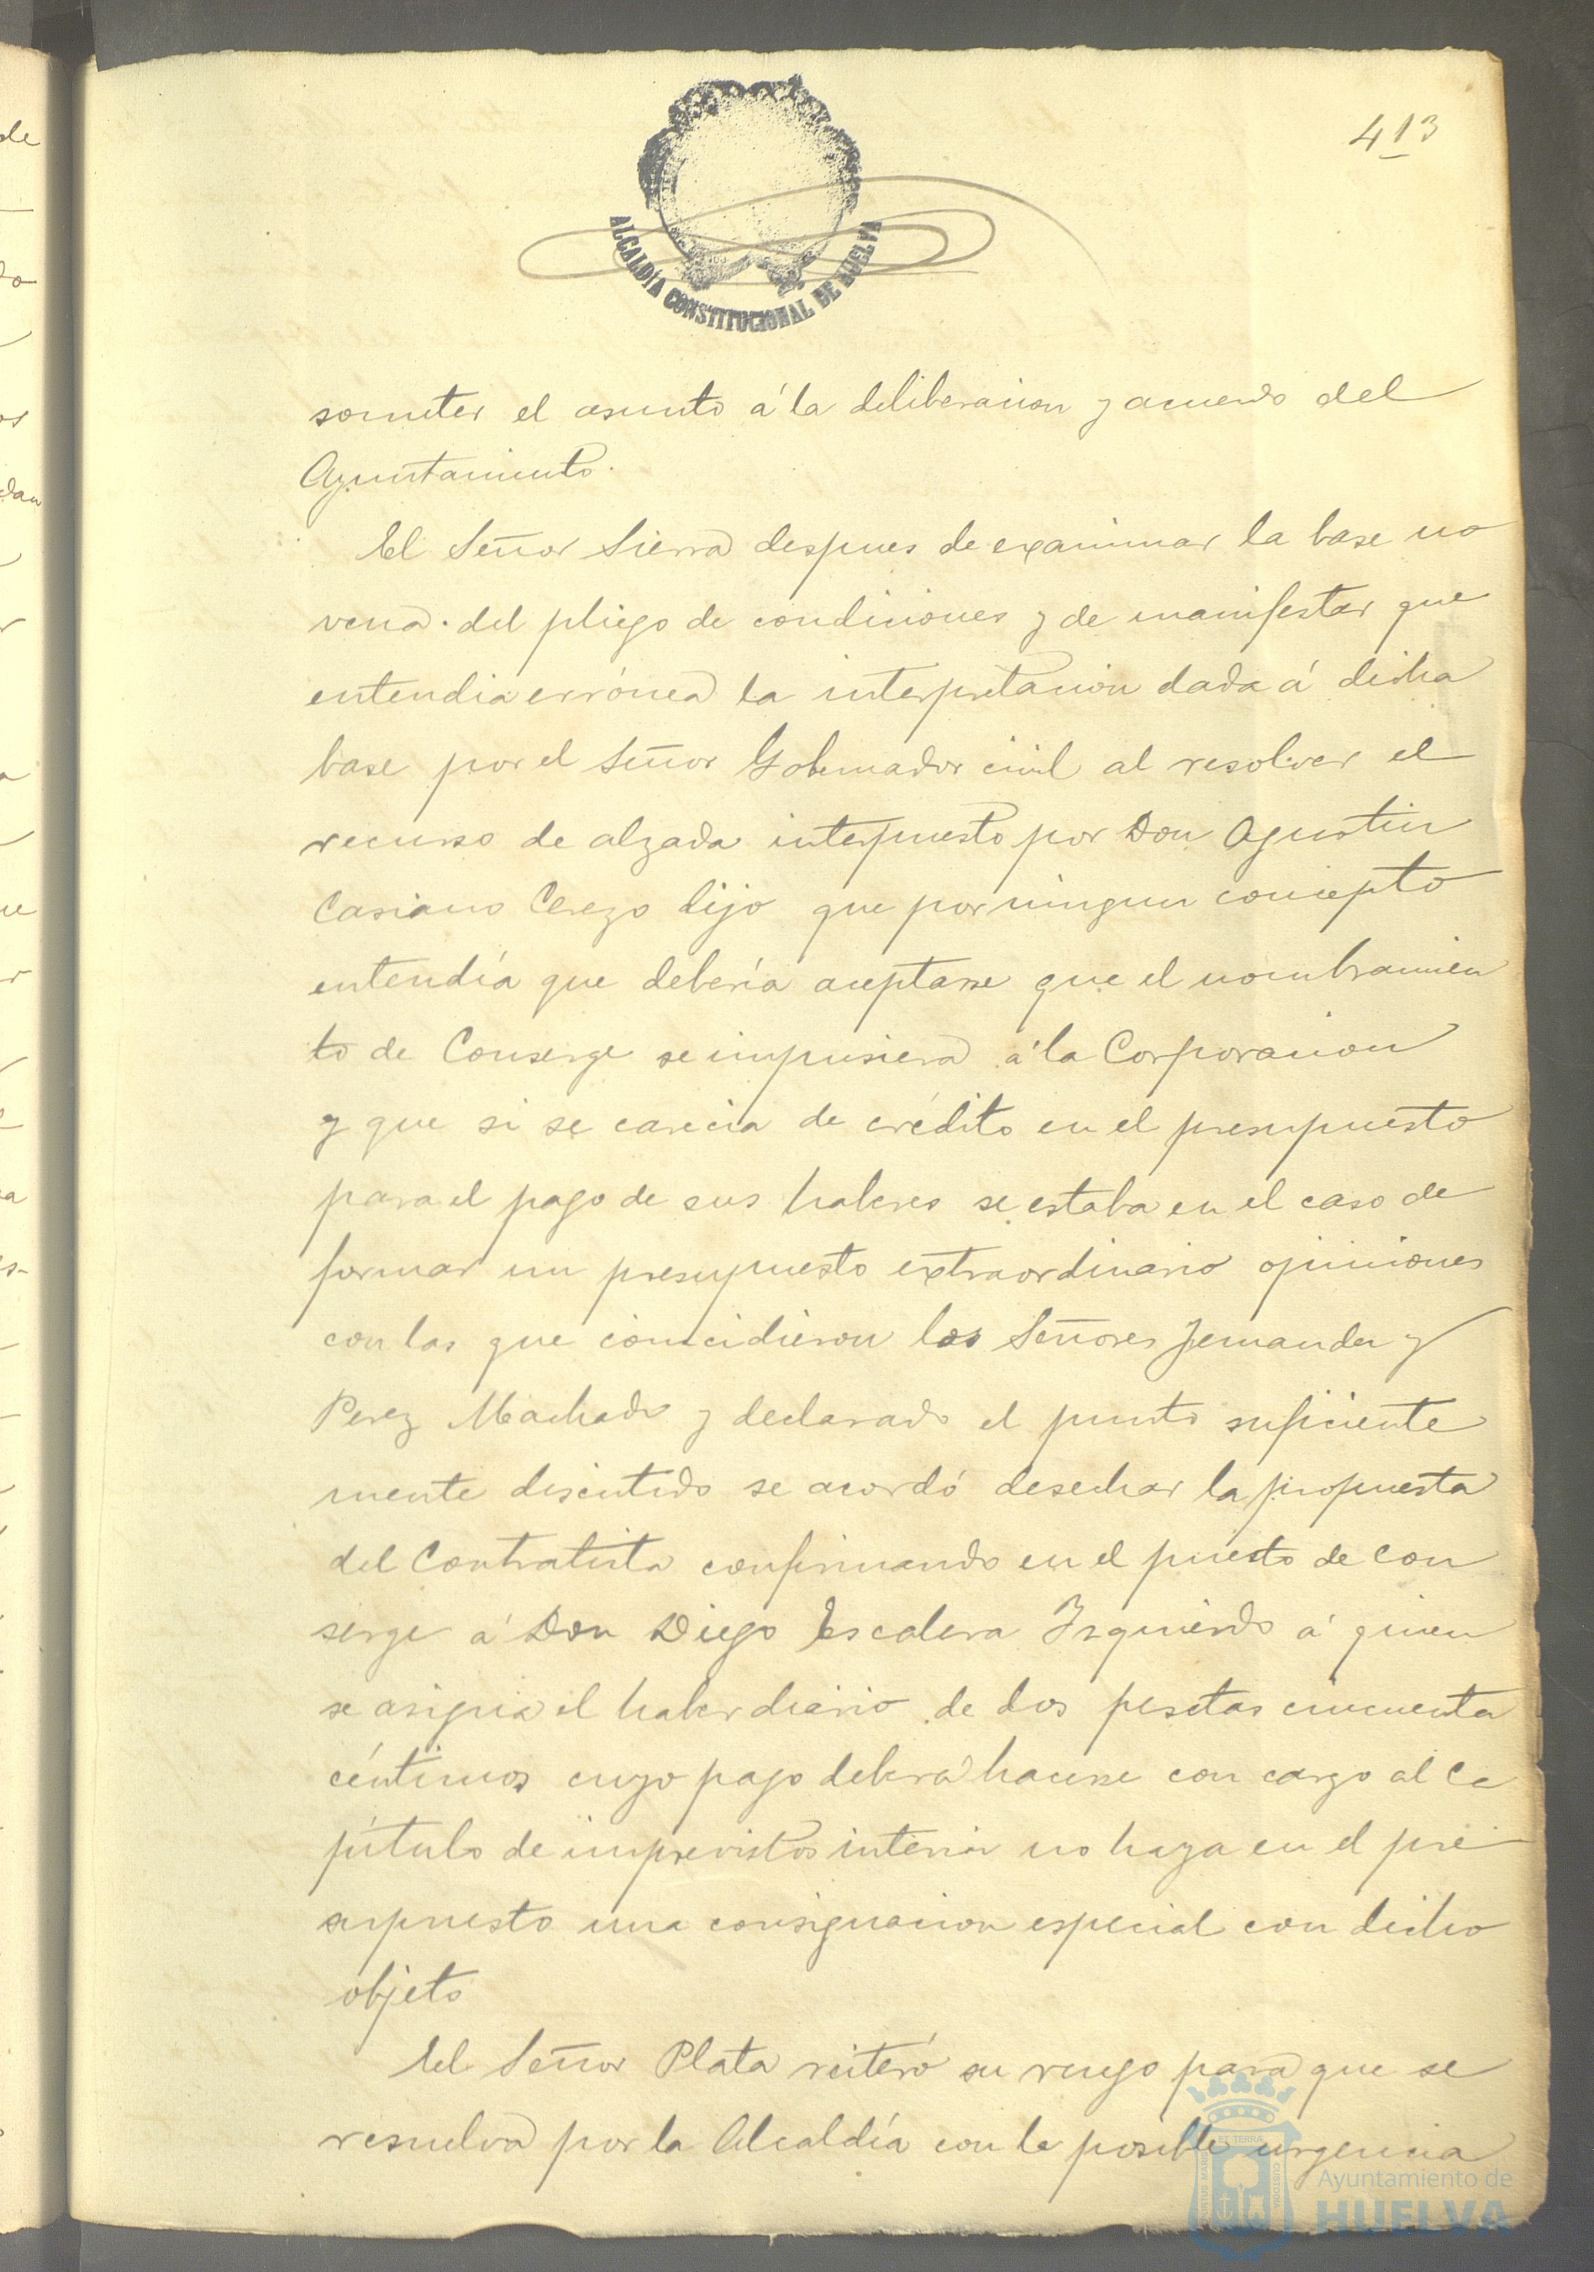 413
ALCALDÍA CONSTITUCIONAL DE HUELVA
someter el asunto á la deliberacion y acuerdo del
Ayuntamiento.
El Señor Sierra despues de examinar la base no
vena del pliego de condiciones y de manifestar que
entendia errónea la interpretacion dada á dicha
base por el Señor Gobernador civil al resolver el
recurso de alzada interpuesto por Don Agustin
Casiano Cerezo dijo que por ningun concepto
entendía que debería aceptarse que el nombramien
to de Conserge se impusiera á la Corporacion
y que si se carecia de crédito en el presupuesto
para el pago de sus haberes se estaba en el caso de
formar un presupuesto extraordinario opiniones
con las que coincidieron los Señores Fernandez y
Perez Machado y declarado el punto suficiente
mente discutido se acordó desechar la propuesta
del Contratista confirmando en el puesto de con
serge á Don Diego Escalera Izquierdo á quien
se asigna el haber diario de dos pesetas cincuenta
céntimos cuyo pago deberá hacerse con cargo al Ca
pítulo de imprevistos interin no haya en el pre
supuesto una consignacion especial con dicho
objeto
El Señor Plata reiteró su ruego para que se
resuelva por la Alcaldía con la posible urgencia
Ayuntamiento de
HUELVA